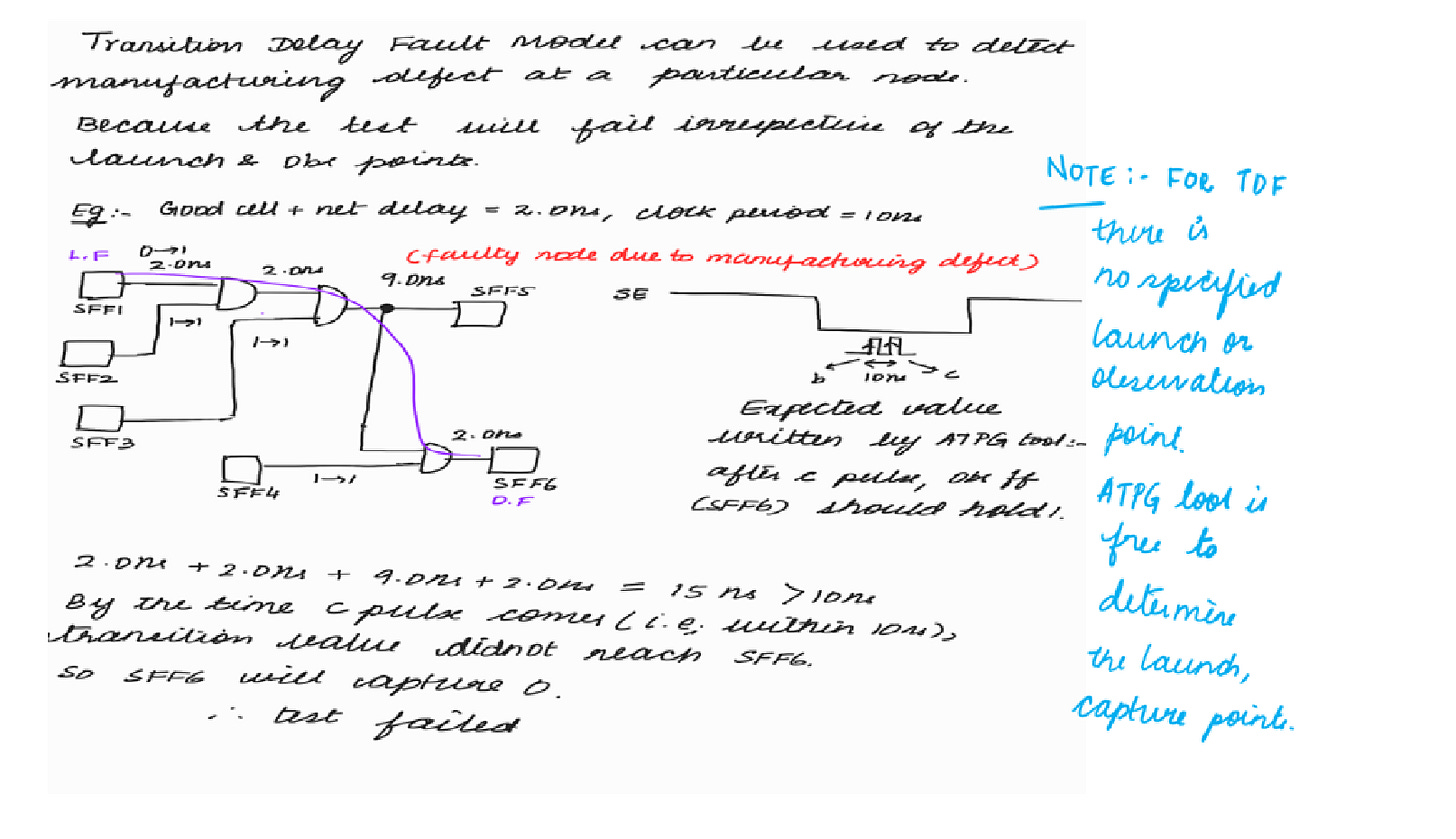 Transition Delay Fault Model can be used to detect
manufacturing defect at a particular node.
Because the test will fail irrespective of the
launch & obs points.
Eg:- Good cell + net delay = 2.0ns, clock period = 10ns
(faulty node due to manufacturing defect)
L.F
0→1
2.0ns
2.0ns
9.0ns
SFF5
SFF1
1→1
1→1
SFF2
SFF3
2.0ns
SFF4
1→1
SFF6
O.F
SE
b
10ns
c
Expected value
written by ATPG tool:-
after c pulse, obs ff
(SFF6) should hold 1.
2.0ns + 2.0ns + 9.0ns + 2.0ns = 15 ns > 10ns
By the time c pulse comes (i.e; within 10ns),
transition value didnot reach SFF6.
So SFF6 will capture 0.
∴ test failed
NOTE:- FOR TDF
there is
no specified
launch or
observation
point.
ATPG tool is
free to
determine
the launch,
capture points.